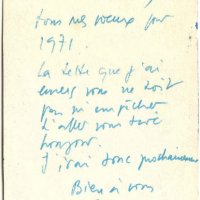 tous mes vœux pour
1971.
La dette que j'ai
envers vous ne doit
pas m'empêcher
d'aller vous dire
bonjour.
J'irai donc prochainement
Bien à vous